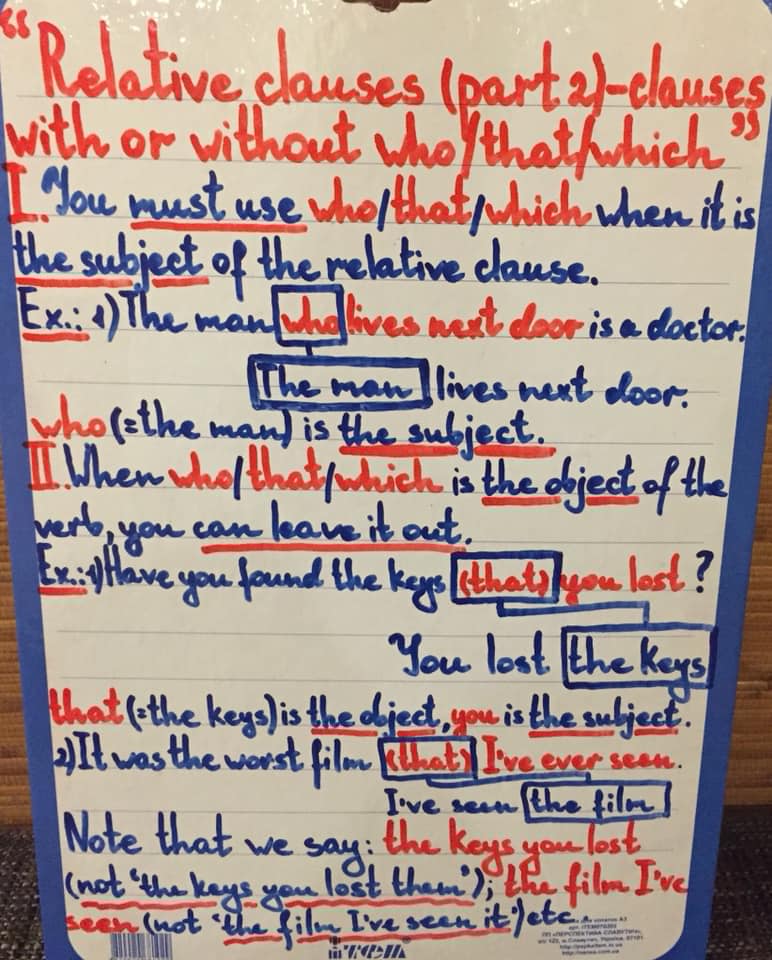 "Relative clauses (part 2)-clauses
with or without who/that/which"
I. You must use who/that/which when it is
the subject of the relative clause.
Ex.: 1) The man who lives next door is a doctor.
The man lives next door.
who (=the man) is the subject.
II. When who/that/which is the object of the
verb, you can leave it out.
Ex.: 1) Have you found the keys (that) you lost?
You lost the keys
that (=the keys) is the object, you is the subject.
2) It was the worst film (that) I've ever seen.
I've seen the film
Note that we say: the keys you lost
(not 'the keys you lost them'); the film I've
seen (not 'the film I've seen it') etc.
ITEM